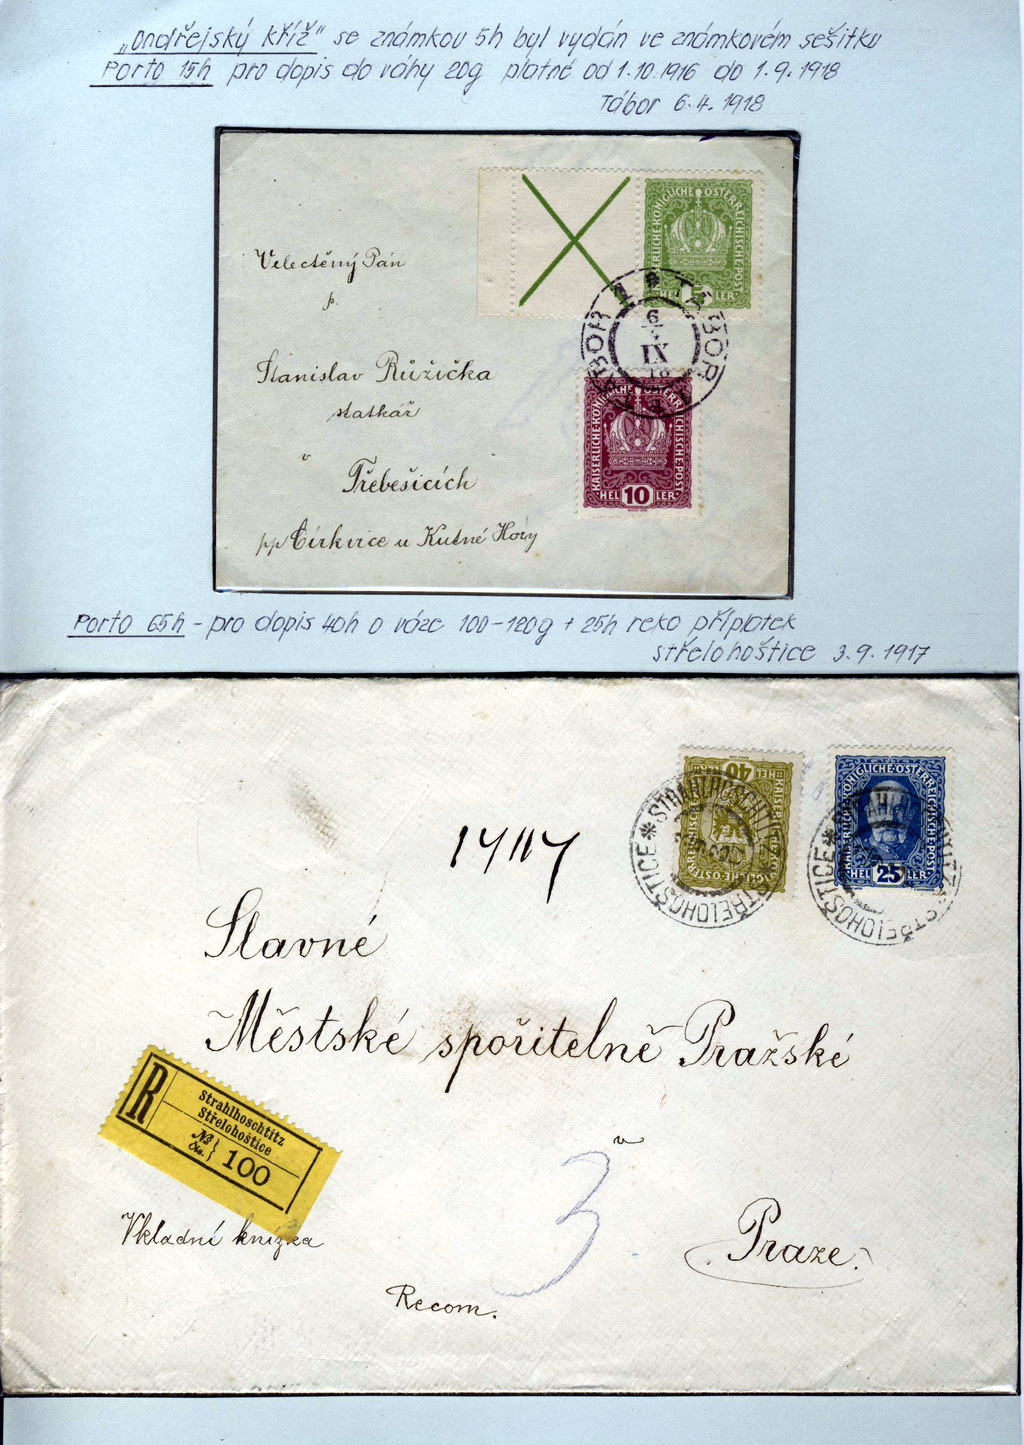 „Ondřejský kříž" se známkou 5h byl vydán ve známkovém sešitku
Porto 15h pro dopis do váhy 20g platné od 1.10.1916 do 1.9.1918
Tábor 6.4.1918
KAISERLICHE·KÖNIGLICHE·ÖSTERREICHISCHE·POST
HEL 5 LER
Velectěný Pán
p.
TÁBOR 1 * TÁBOR
6
IX
18
Stanislav Růžička
statkář
v
Třebešicích
pp Církvice u Kutné Hory
KAISERLICHE·KÖNIGLICHE·ÖSTERREICHISCHE·POST
HEL 10 LER
Porto 65h - pro dopis 40h o váze 100-120g + 25h reko příplatek
Střelohoštice 3.9.1917
KAISERLICHE·KÖNIGLICHE·ÖSTERREICHISCHE·POST
HEL 40 LER
KAISERLICHE·KÖNIGLICHE·ÖSTERREICHISCHE·POST
HEL 25 LER
* STRAHLHOSCHTITZ * STŘELOHOŠTICE
* STRAHLHOSCHTITZ * STŘELOHOŠTICE
Slavné
Městské spořitelně Pražské
v
Praze.
R
Strahlhoschtitz
Střelohoštice
No
čis. 100
3
Vkladní knížka
Recom.